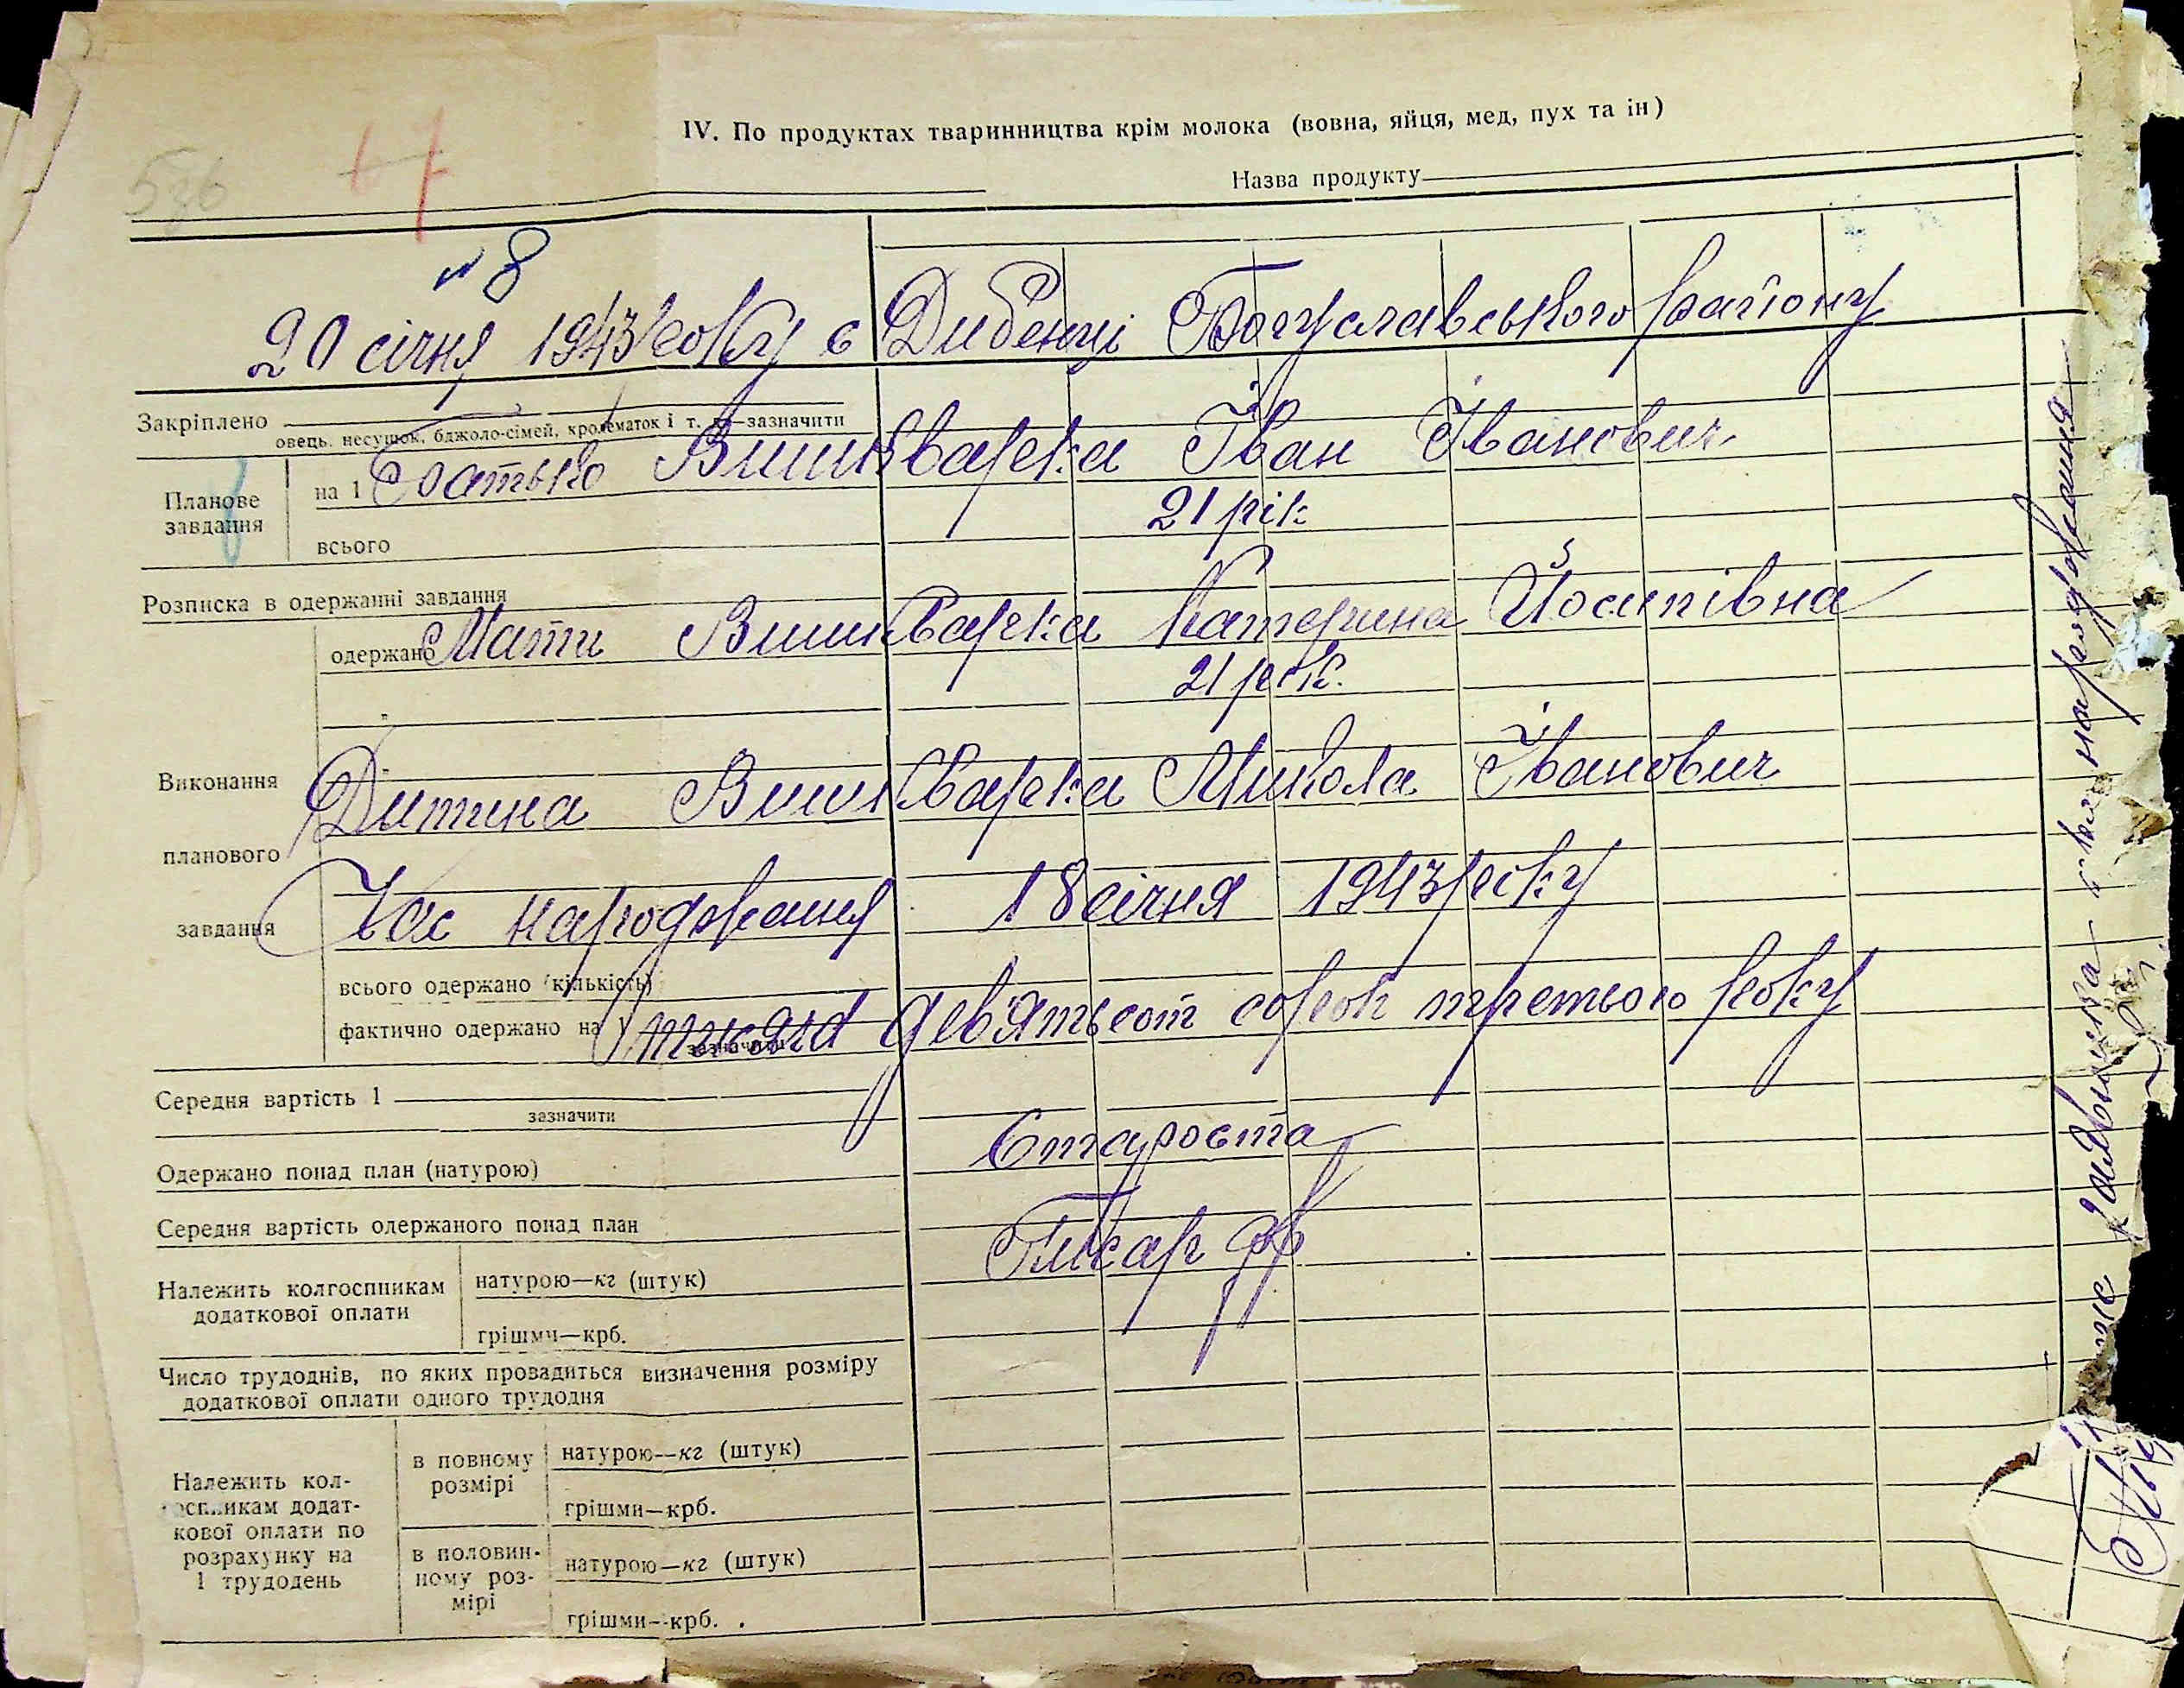 IV. По продуктах тваринництва крім молока (вовна, яйця, мед, пух та ін)
Назва продукту
536
17
№ 8
20 січня 1943 року с Дибенці Богуславського району
Закріплено
овець, несушок, бджоло-сімей, кролематок і т. п.—зазначити
Планове завдання
на 1
Батько Вишкварка Іван Іванович
21 рік
всього
Розписка в одержанні завдання
одержано
Мати Вишкварка Катерина Йосипівна
21 рок.
Виконання
Дитина Вишкварка Микола Іванович
планового
Час народження 18 січня 1943 року
завдання
всього одержано (кількість)
фактично одержано на 1
зазначити
тисяча девятьсот сорок третього року
Середня вартість 1
зазначити
Староста
Одержано понад план (натурою)
Писар
Середня вартість одержаного понад план
Належить колгоспникам додаткової оплати
натурою—кг (штук)
грішми—крб.
Число трудоднів, по яких провадиться визначення розміру
додаткової оплати одного трудодня
Належить кол-
госпникам додат-
кової оплати по
розрахунку на
1 трудодень
в повному
розмірі
натурою—кг (штук)
грішми—крб.
в половин-
ному роз-
мірі
натурою—кг (штук)
грішми—крб.
народження